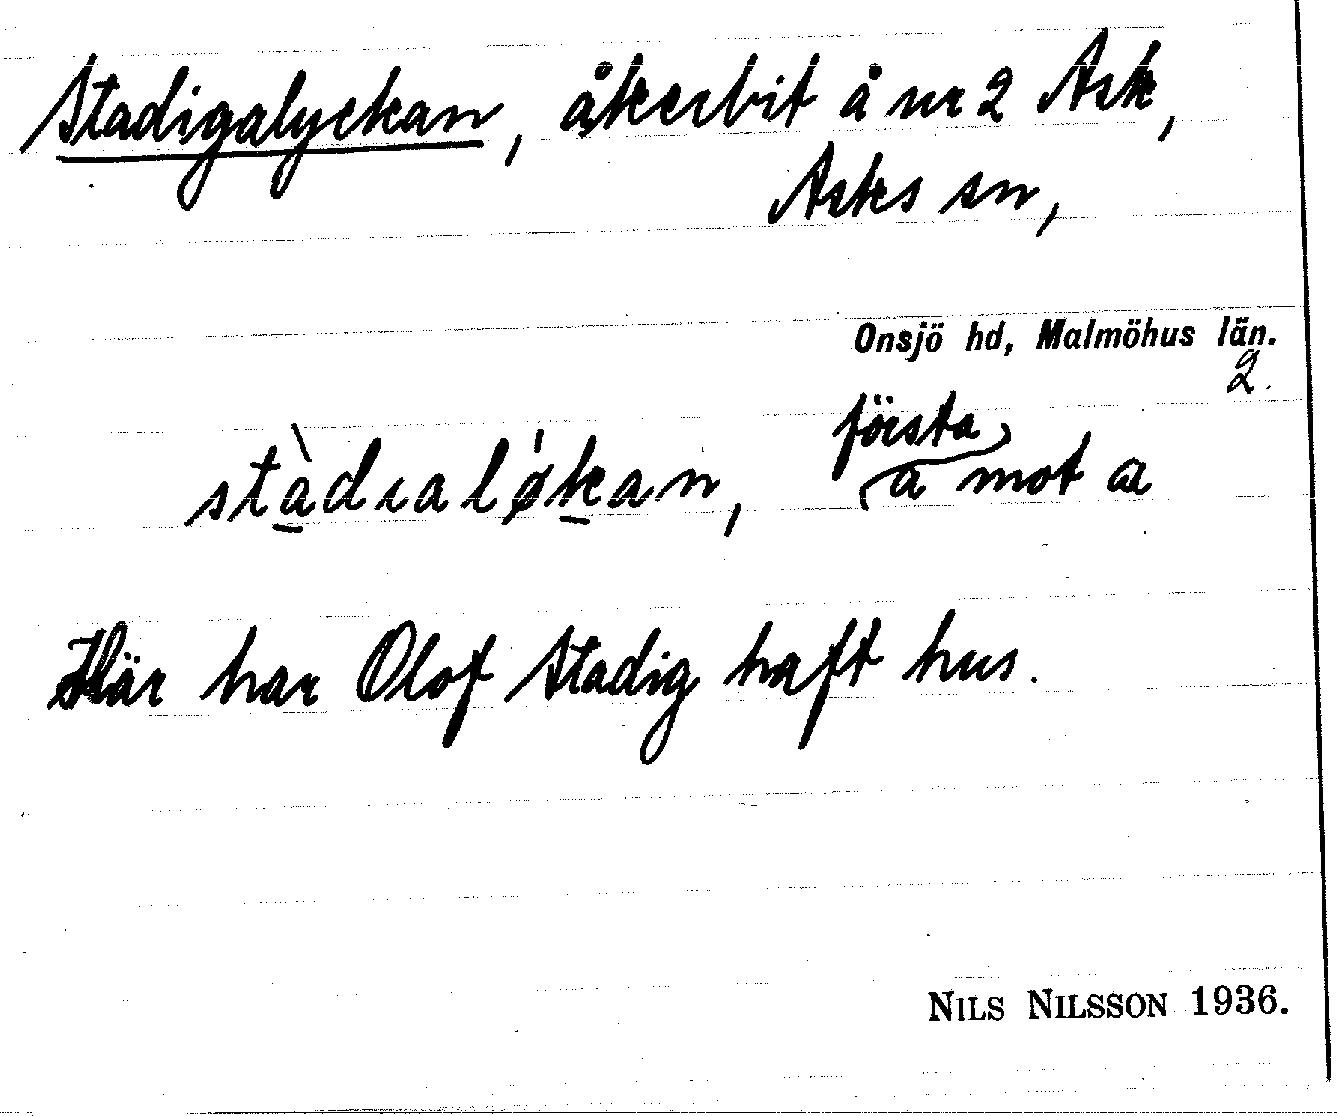 Stadigalyckan, åkerbit å nr 2 Ask,
Asks sn,
Onsjö hd, Malmöhus län.
2.
första
stàdıaløkan, a mot a
Här har Olof Stadig haft hus.
NILS NILSSON 1936.